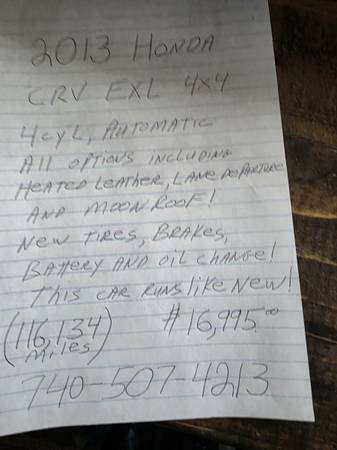 2013 HONDA
CRV EXL 4x4
4cyL, AUTOMATIC
All options including
HEATED LEATHER, LANE DEPARTURE
AND MOONROOF!
NEW TIRES, BRAKES,
BATTERY AND OIL CHANGE!
THIS CAR RUNS like NEW!
(116,134) $16,995.00
miles
740-507-4213